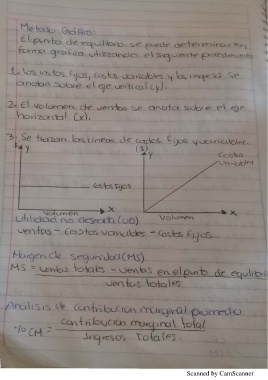 Metodo Grafico:
El punto de equilibrio se puede determinar en
forma grafica utilizando el siguiente procedimiento
1. Los costos fijos, costos variables y los ingresos se
anotan sobre el eje vertical (y).
2. El volumen de ventas se anota sobre el eje
horizontal (x).
3. Se trazan las lineas de costos fijos y variables.
y
costos fijos
x
Volumen
($)
y
Costos
Variables
x
Volumen
Utilidad no deseada (UD).
ventas - costos variables - costos fijos.
Margen de seguridad (MS)
MS = ventas totales - ventas en el punto de equilibrio
ventas totales
Analisis de contribucion marginal promedio
% CM = contribucion marginal total
Ingresos Totales.
Scanned by CamScanner